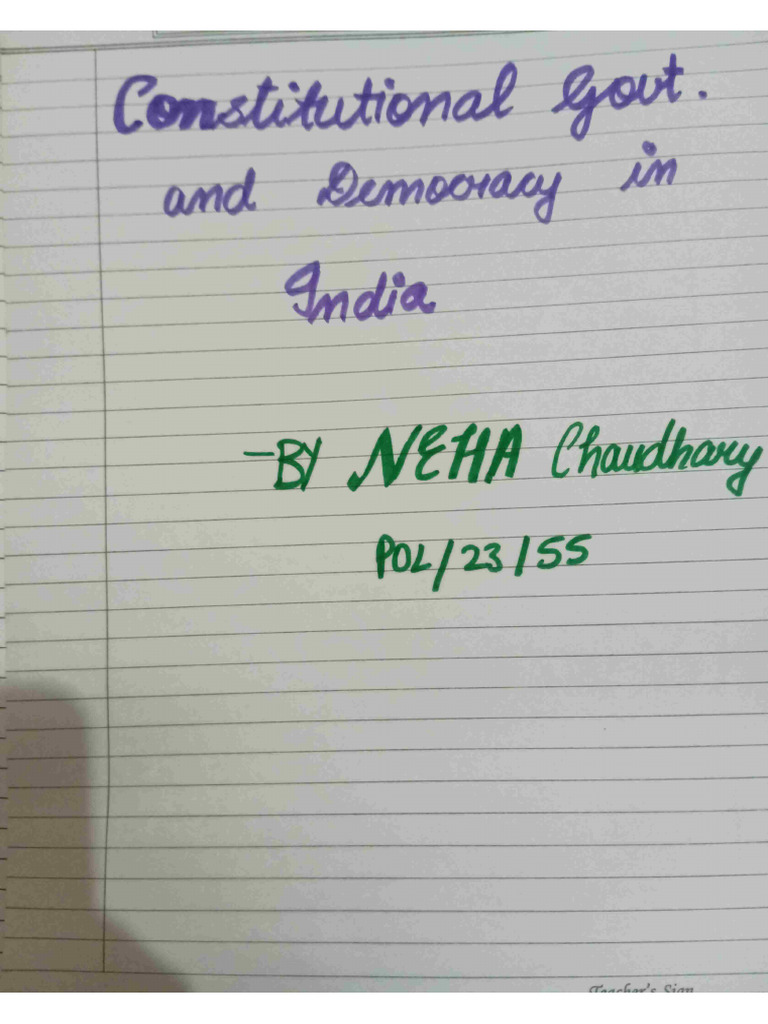 Constitutional Govt.
and Democracy in
India
- BY NEHA Chaudhary
POL/23/55
Teacher's Sign